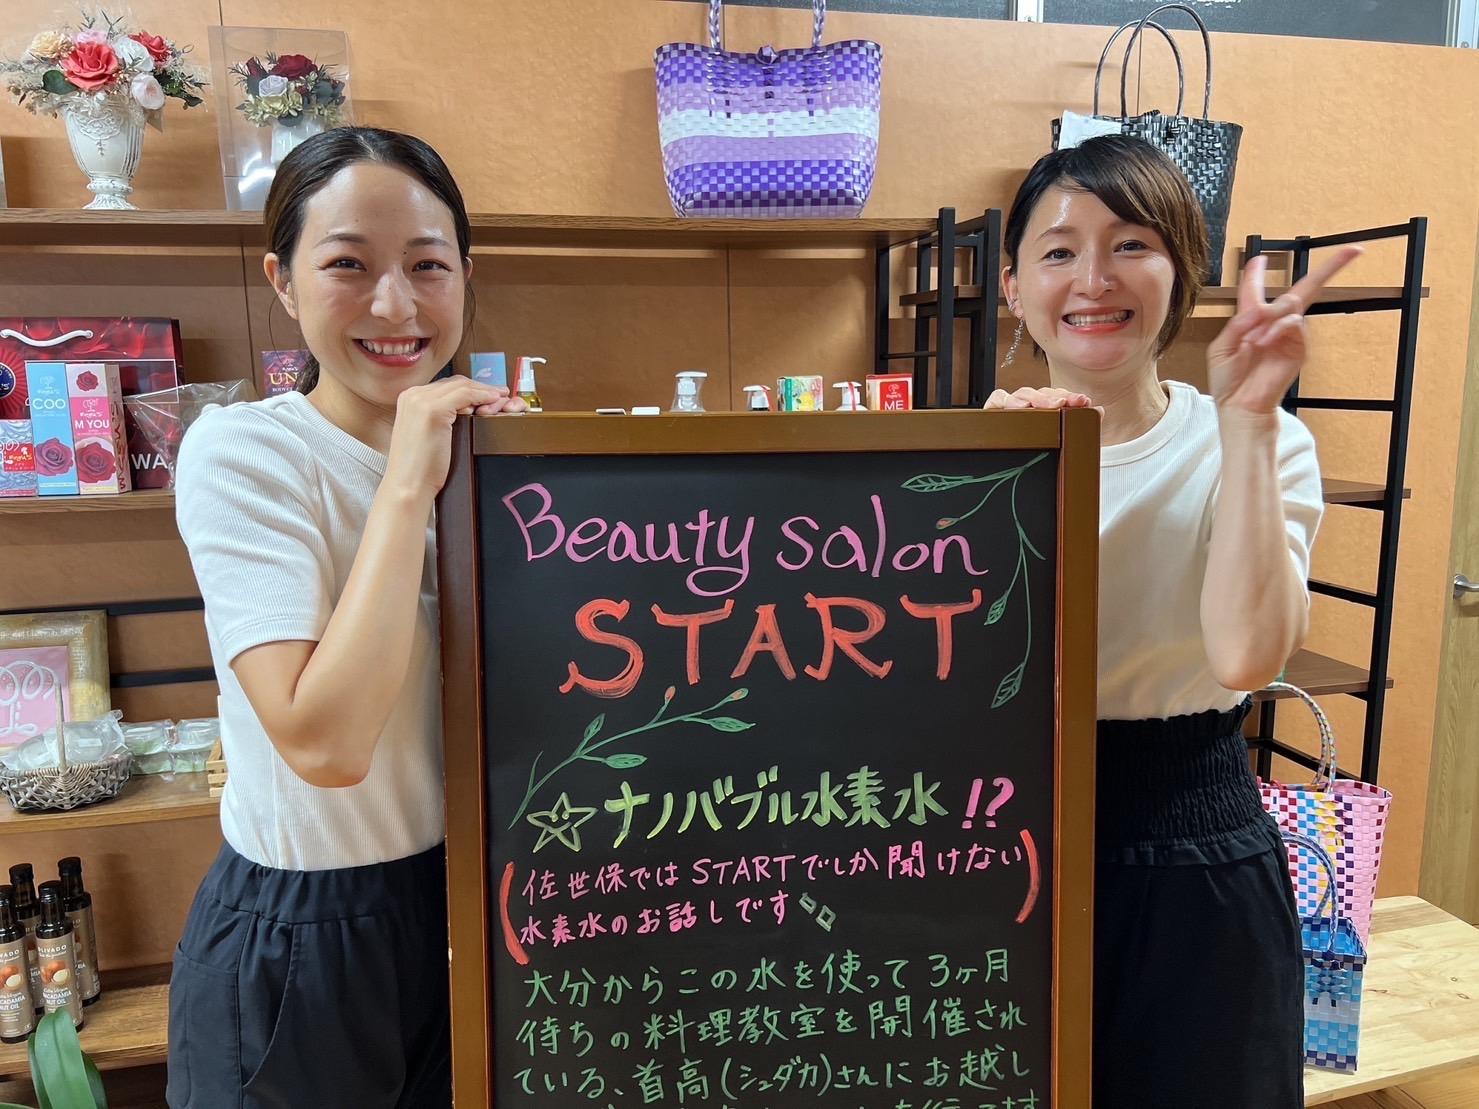 Beauty salon
START
☆ナノバブル水素水!?
(佐世保ではSTARTでしか聞けない
水素水のお話しです)
大分からこの水を使って3ヶ月
待ちの料理教室を開催され
ている、首高(シュダカ)さんにお越し
COO
M YOU
UN
ME
WA
MACADAMIA
NUT OIL